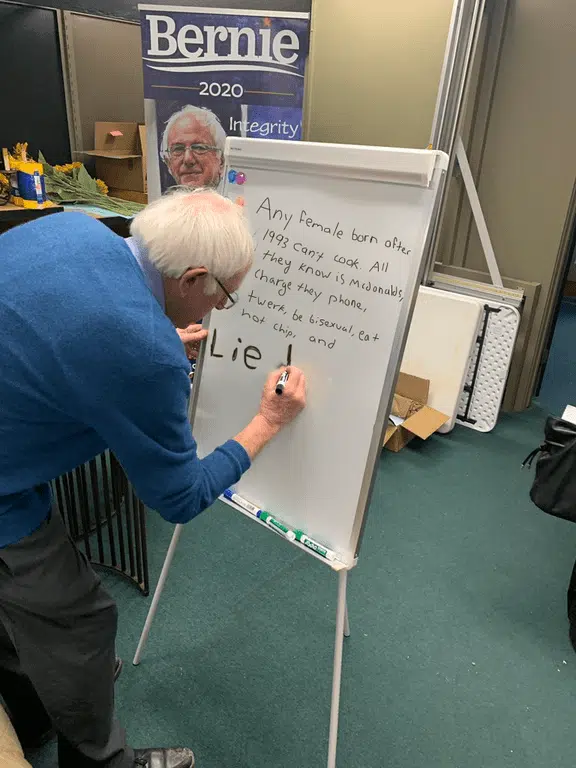 Bernie
2020
Integrity
Any female born after
1993 can't cook. All
they know is mcdonalds,
charge they phone,
twerk, be bisexual, eat
hot chip, and
Lie !